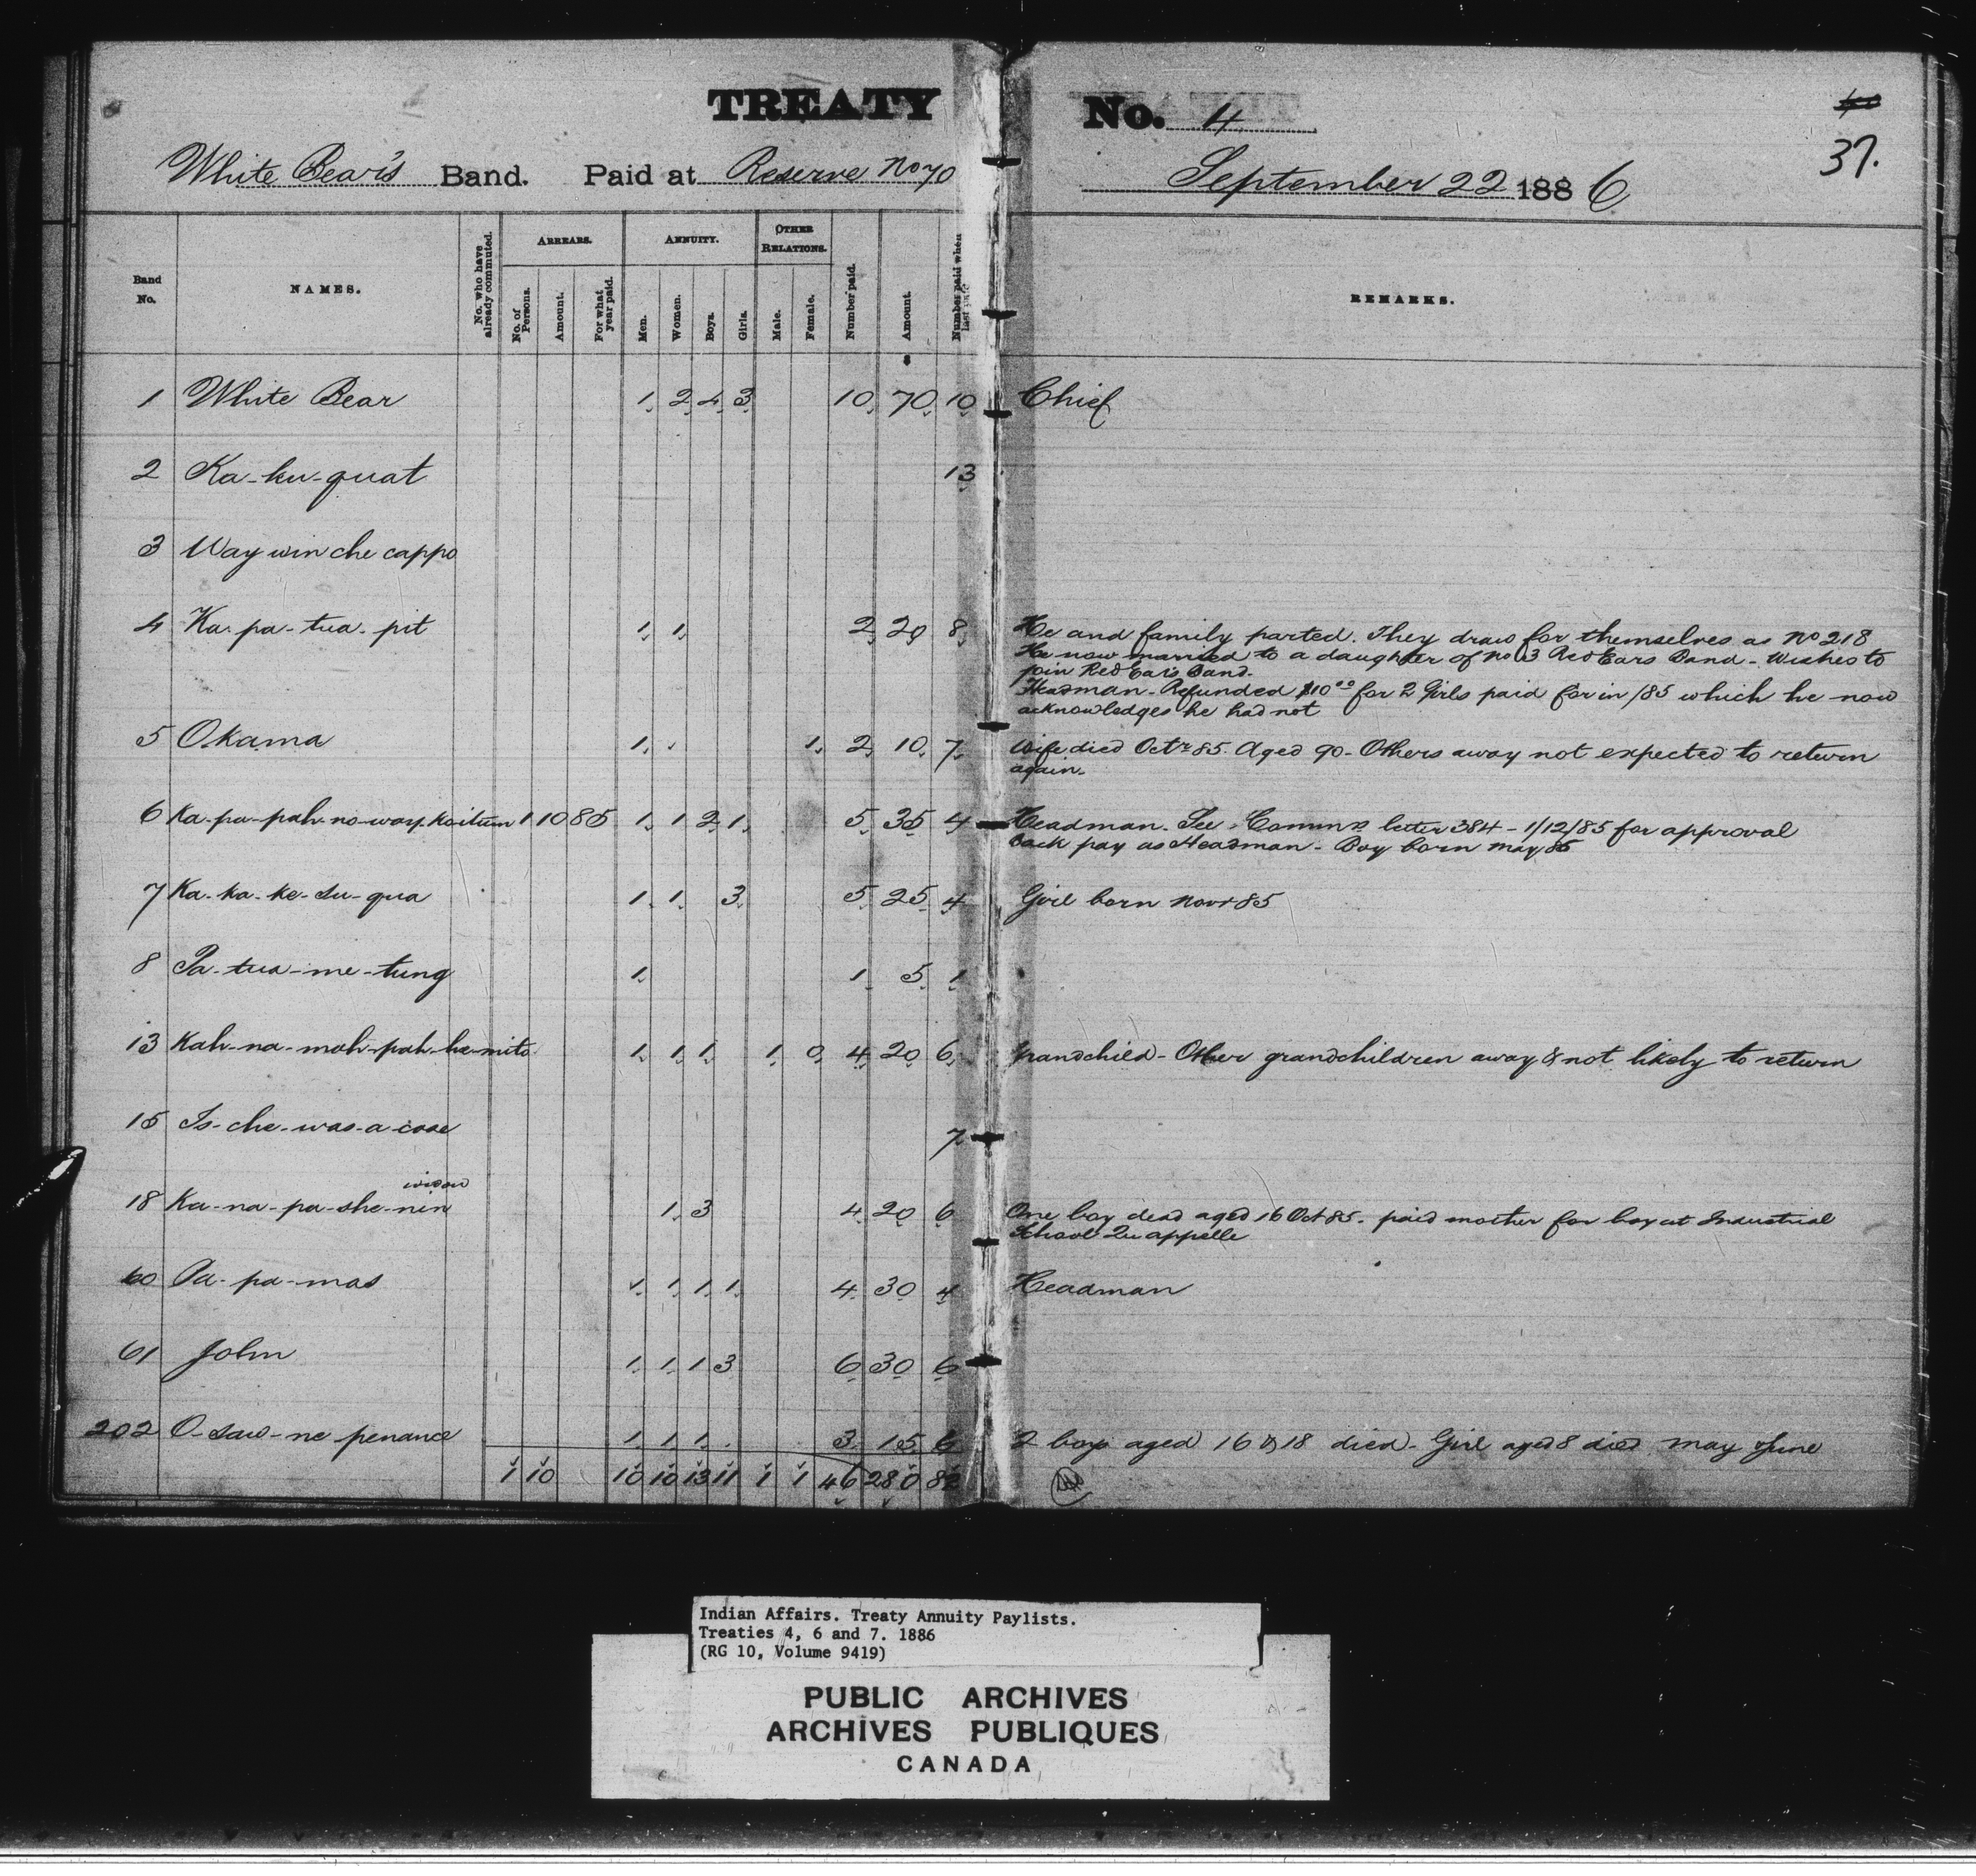 TREATY No. 4
37.
White Bear's Band. Paid at Reserve No 70 September 22 1886
Band No. NAMES. No. who have already commuted. ARREARS. No. of Persons. Amount. For what year paid. ANNUITY. Men. Women. Boys. Girls. OTHER RELATIONS. Male. Female. Number paid. Amount. Number paid when last paid REMARKS.
1 White Bear 1 2 4 3 10 70 10 Chief
2 Ka-ku-quat 13
3 Way win che cappo
4 Ka-pa-tua-pit 1 1 2 20 8 He and family parted. They draw for themselves as No 218
He now married to a daughter of No 3 Red Ears Band - Wishes to
join Red Ear's Band.
Headman - Refunded $10.00 for 2 Girls paid for in /85 which he now
acknowledges he had not
5 Okama 1 1 2 10 7 Wife died Octr 85. Aged 90 - Others away not expected to return
again.
6 Ka-pa-pah-no-way-koitum 1 10 85 1 1 2 1 5 35 4 Headman. See Commrs letter 384 - 1/12/85 for approval
back pay as Headman - Boy born May 86
7 Ka-ka-ke-su-qua 1 1 3 5 25 4 Girl born Novr 85
8 Pa-tua-me-tung 1 1 5 1
13 Kah-na-mah-pah-he-mito 1 1 1 1 0 4 20 6 grandchild - Other grandchildren away & not likely to return
15 Is-che-was-a-cose 7
widow
18 Ka-na-pa-she-nin 1 3 4 20 6 One boy dead aged 16 Oct 85. paid mother for boy at Industrial
School Qu'appelle
60 Pa-pa-mas 1 1 1 1 4 30 4 Headman
61 John 1 1 1 3 6 30 6
202 O-saw-ne-penance 1 1 1 3 15 6 2 boys aged 16 & 18 died - Girl aged 8 died May & June
1 10 10 10 13 11 1 1 46 280 82
Indian Affairs. Treaty Annuity Paylists.
Treaties 4, 6 and 7. 1886
(RG 10, Volume 9419)
PUBLIC ARCHIVES
ARCHIVES PUBLIQUES
CANADA